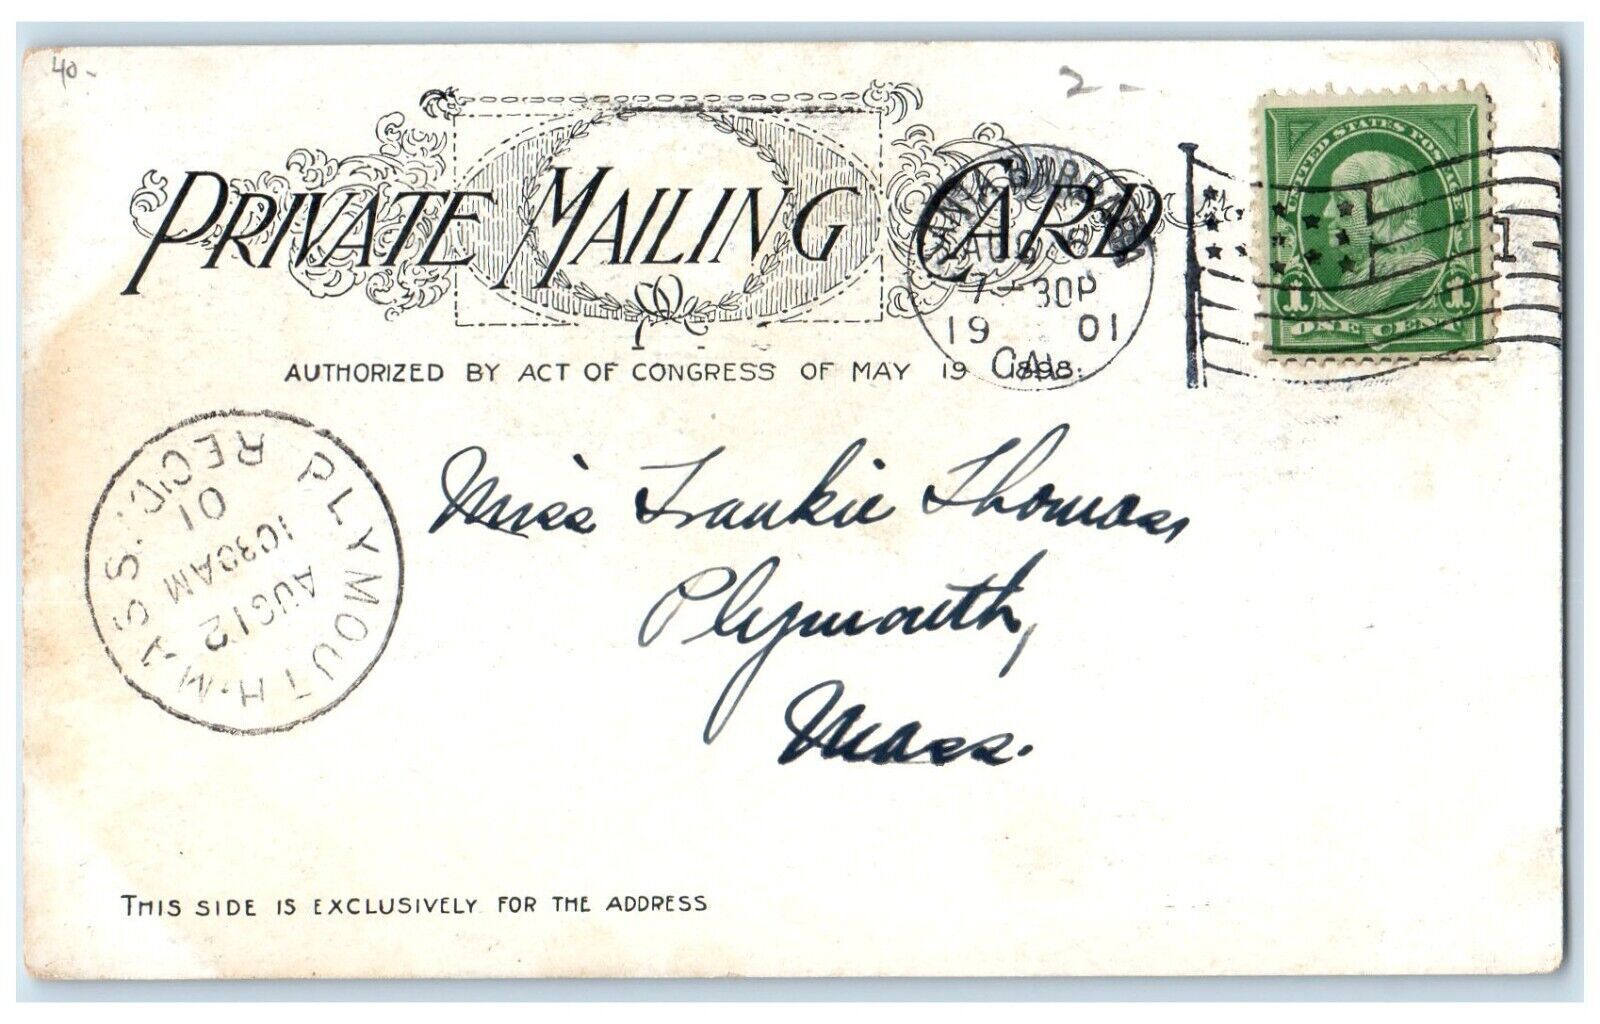 40-
2-
PRIVATE MAILING CARD
SANTA BARBARA
AUG 6
7-30P
19 01
CAL.
UNITED STATES POSTAGE
1 1
ONE CENT
1
AUTHORIZED BY ACT OF CONGRESS OF MAY 19 1898.
PLYMOUTH. MASS.
REC'D.
AUG 12
1030AM
01
Miss Frankie Thomas
Plymouth,
Mass.
THIS SIDE IS EXCLUSIVELY FOR THE ADDRESS